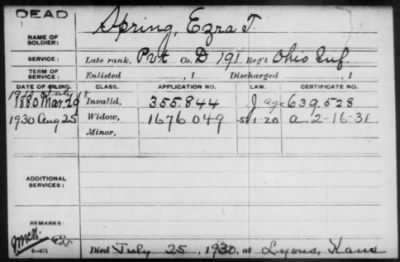 DEAD
NAME OF SOLDIER: Spring, Ezra T.
SERVICE: Late rank, Pvt Co. D 191 Reg't Ohio Inf.
TERM OF SERVICE: Enlisted , 1 Discharged , 1
DATE OF FILING. CLASS. APPLICATION NO. LAW. CERTIFICATE NO.
1880 Mar. 29 Invalid, 355.844 J 639.528
1930 Aug 25 Widow, 1676049 5-1-20 a 2-16-31
Minor,
ADDITIONAL SERVICES:
REMARKS:
Died July 25, 1930. at Lyons, Kans